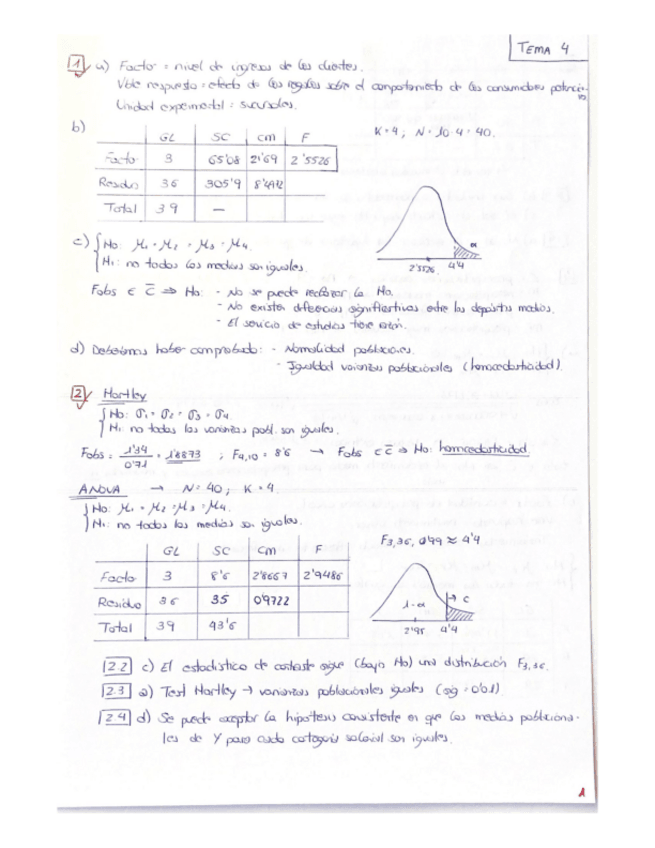 TEMA 4
1 a) Factor = nivel de ingresos de los clientes.
Vble respuesta = efecto de los regalos sobre el comportamiento de los consumidores potenciales
Unidad experimental = sucursales.
b)
GL SC CM F
Factor 3 65'08 21'69 2'5526
Residuo 36 305'9 8'4972
Total 39 —
K = 4 ; N = 10·4 = 40.
c) { H₀: μ₁ = μ₂ = μ₃ = μ₄.
H₁: no todas las medias son iguales.
α
2'5526 4'4
Fobs ∈ C̄ ⇒ H₀: - No se puede rechazar la H₀.
- No existen diferencias significativas entre los depósitos medios.
- El servicio de estudios tiene razón.
d) Deberíamos haber comprobado: - Normalidad poblaciones.
- Igualdad varianzas poblacionales (homocedasticidad).
2 Hartley
{ H₀: σ₁ = σ₂ = σ₃ = σ₄
H₁: no todas las varianzas pobl. son iguales.
Fobs = 1'34 / 0'71 = 1'8873 ; F4,10 = 8'6 → Fobs ∈ C̄ ⇒ H₀: homocedasticidad.
ANOVA → N = 40 ; K = 4.
{ H₀: μ₁ = μ₂ = μ₃ = μ₄.
H₁: no todas las medias son iguales.
GL SC CM F
Factor 3 8'6 2'8667 2'9486
Residuo 36 35 0'9722
Total 39 43'6
F3,36, 0'99 ≈ 4'4
1-α C
2'95 4'4
2.2 c) El estadístico de contraste sigue (bajo H₀) una distribución F3,36.
2.3 a) Test Hartley → varianzas poblacionales iguales (sig = 0'01)
2.4 d) Se puede aceptar la hipótesis consistente en que las medias poblaciona-
les de Y para cada categoría salarial son iguales.
1